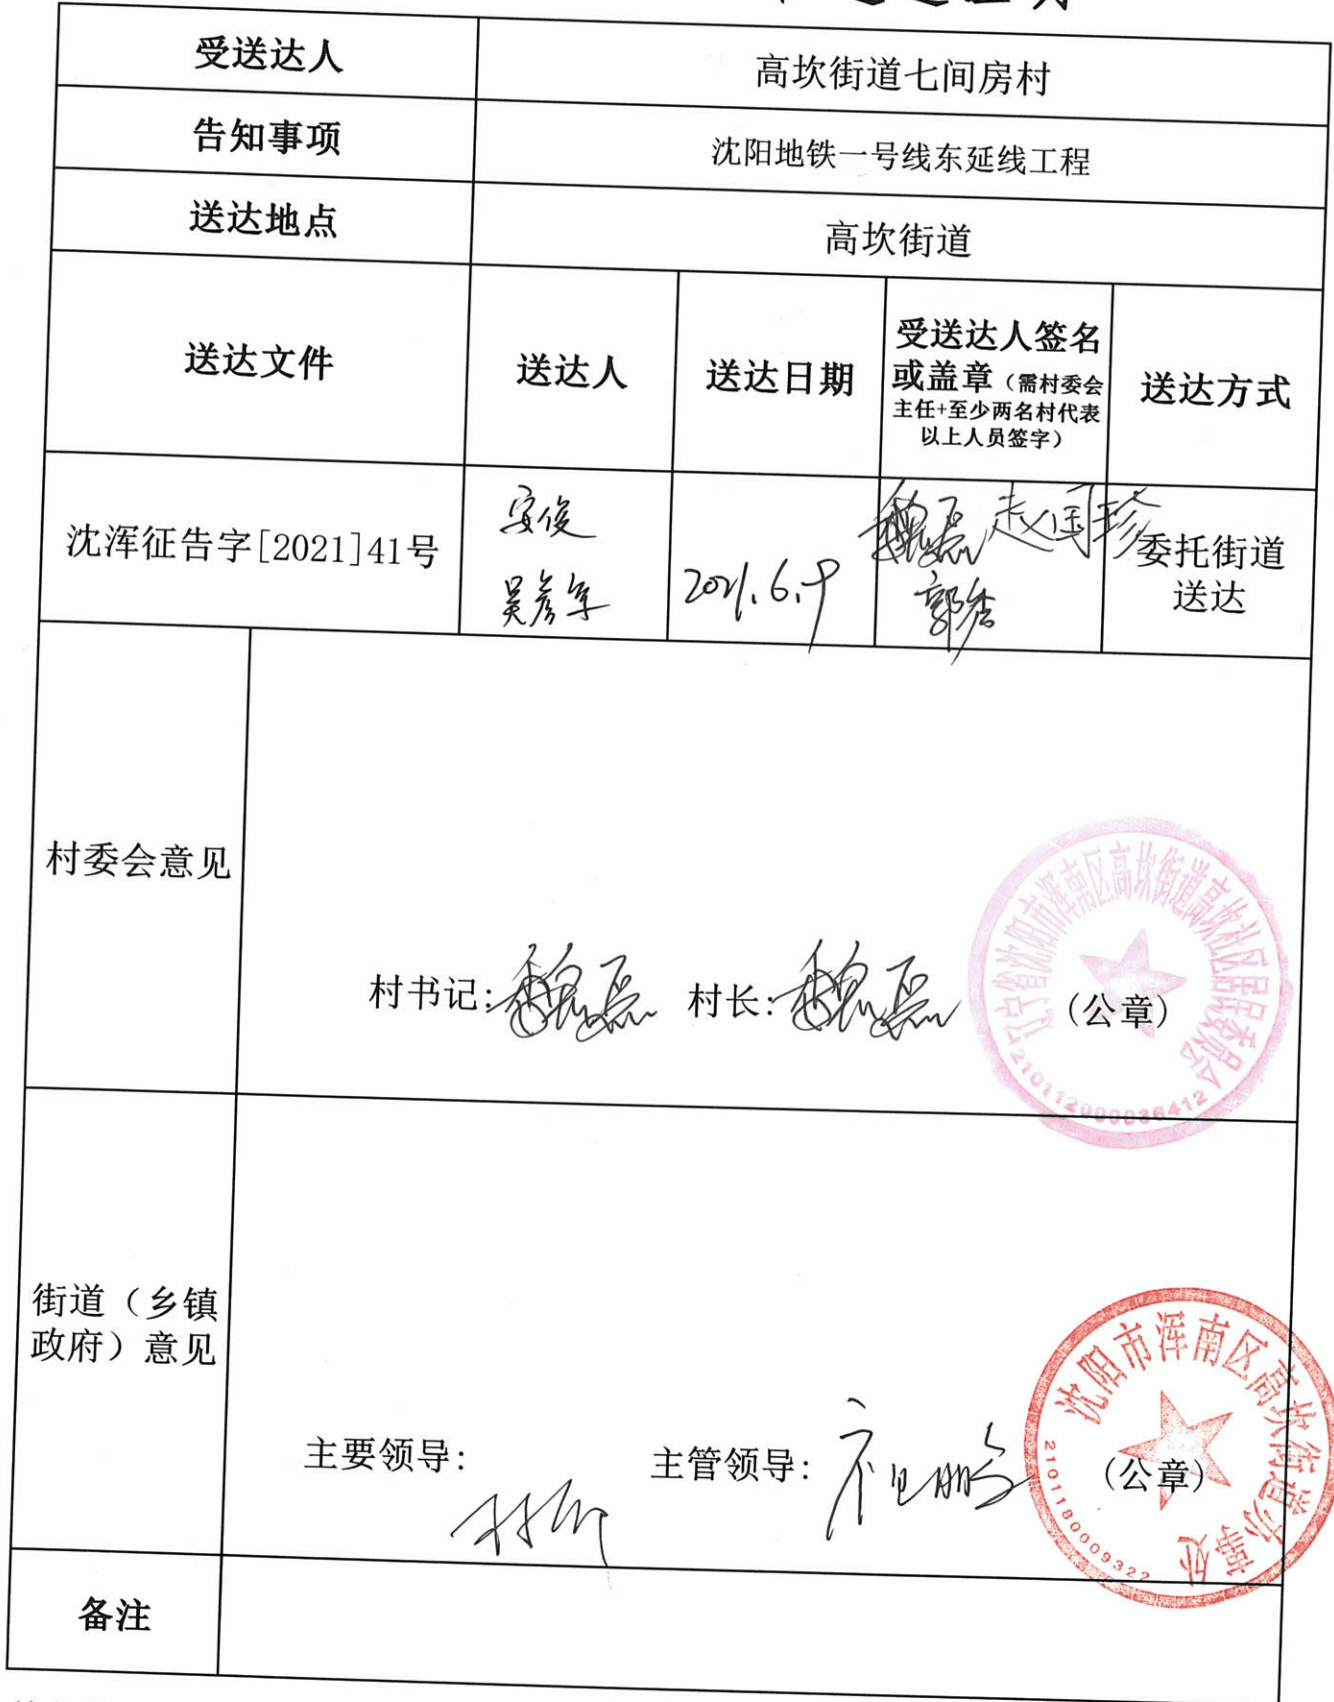 受送达人 高坎街道七间房村
告知事项 沈阳地铁一号线东延线工程
送达地点 高坎街道
送达文件 送达人 送达日期 受送达人签名
或盖章（需村委会
主任+至少两名村代表
以上人员签字） 送达方式
沈浑征告字[2021]41号
安俊
吴彦军
2021.6.9
魏磊 赵国珍
郭秀
委托街道
送达
村委会意见
村书记: 魏磊 村长: 魏磊 (公章)
辽宁省沈阳市浑南区高坎街道高坎社区居民委员会
街道（乡镇
政府）意见
主要领导:
主管领导:
(公章)
沈阳市浑南区高坎街道办事处
备注